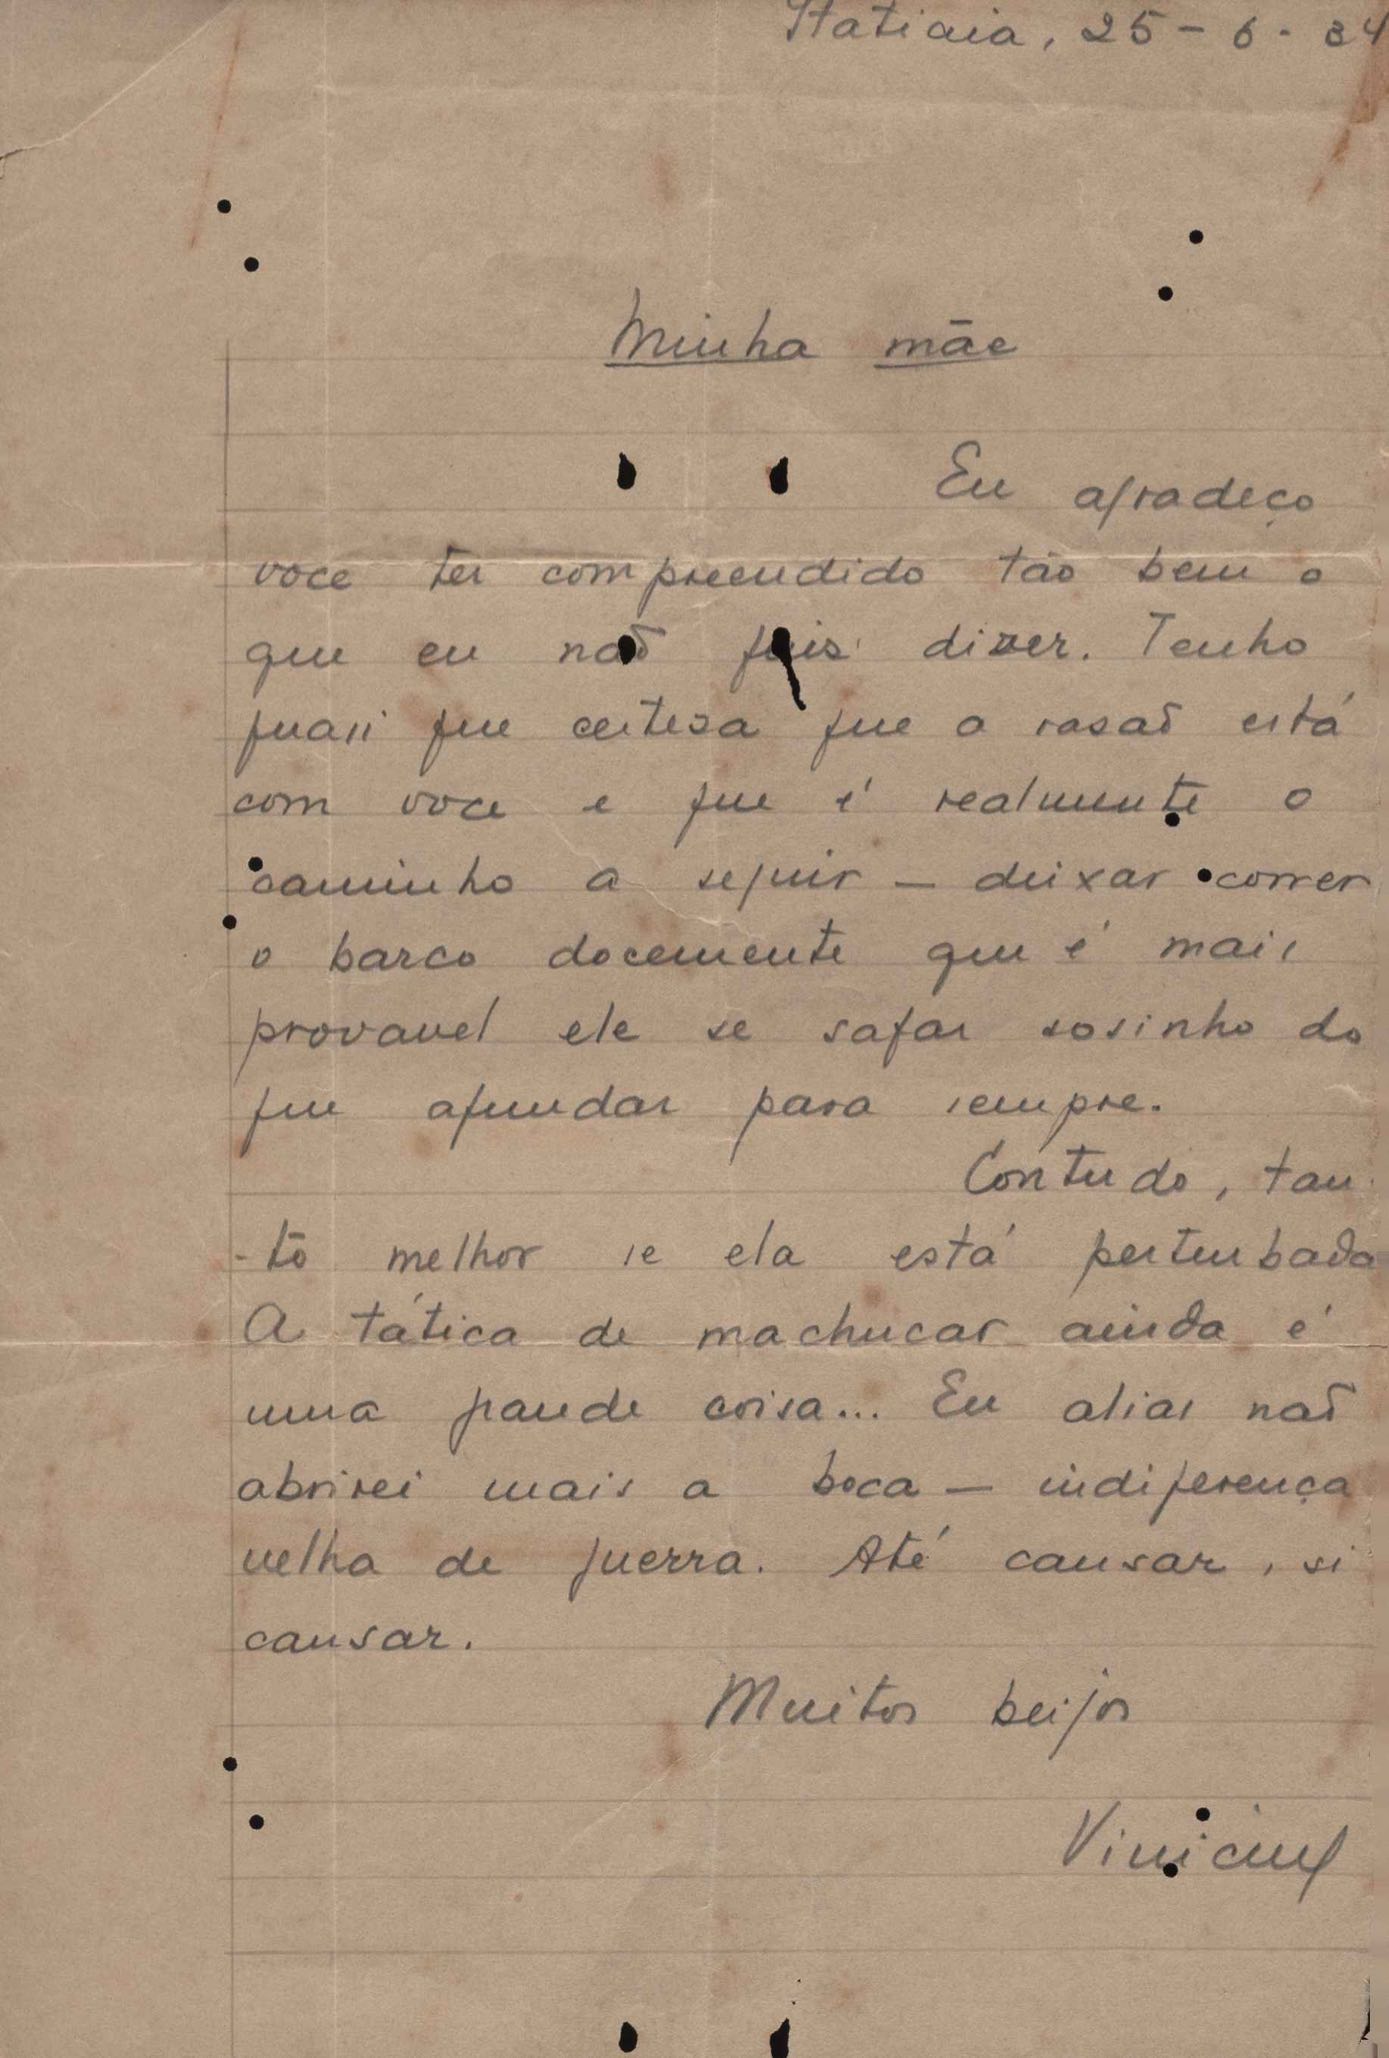 Itatiaia, 25 - 6 - 34
Minha mãe
Eu agradeço
voce ter compreendido tão bem o
que eu não quis dizer. Tenho
quasi que certesa que a rasaõ está
com voce e que é realmente o
caminho a seguir — deixar correr
o barco docemente que é mais
provavel ele se safar sosinho do
que afundar para sempre.
Contudo, tan
-to melhor se ela está perturbada
A tática de machucar ainda é
uma grande coisa... Eu alias naõ
abrirei mais a boca — indiferença
velha de guerra. Até causar, si
causar.
Muitos beijos
Vinicius